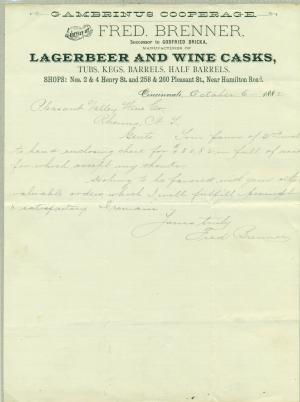 GAMBRINUS COOPERAGE.
FRED. BRENNER,
Successor to GODFRIED BRICKA,
MANUFACTURER OF
LAGERBEER AND WINE CASKS,
TUBS, KEGS, BARRELS, HALF BARRELS.
SHOPS: Nos. 2 & 4 Henry St. and 258 & 260 Pleasant St., Near Hamilton Road.
Cincinnati, October 6 1882
Pleasant Valley Wine Co.
Rheims, N. Y.
Gents Your favor of
to hand enclosing check for in full of
for which accept my thanks.
Hoping to be favored with your
valuable orders, which I will fulfill
& satisfactory I remain
Yours truly
Fred Brenner